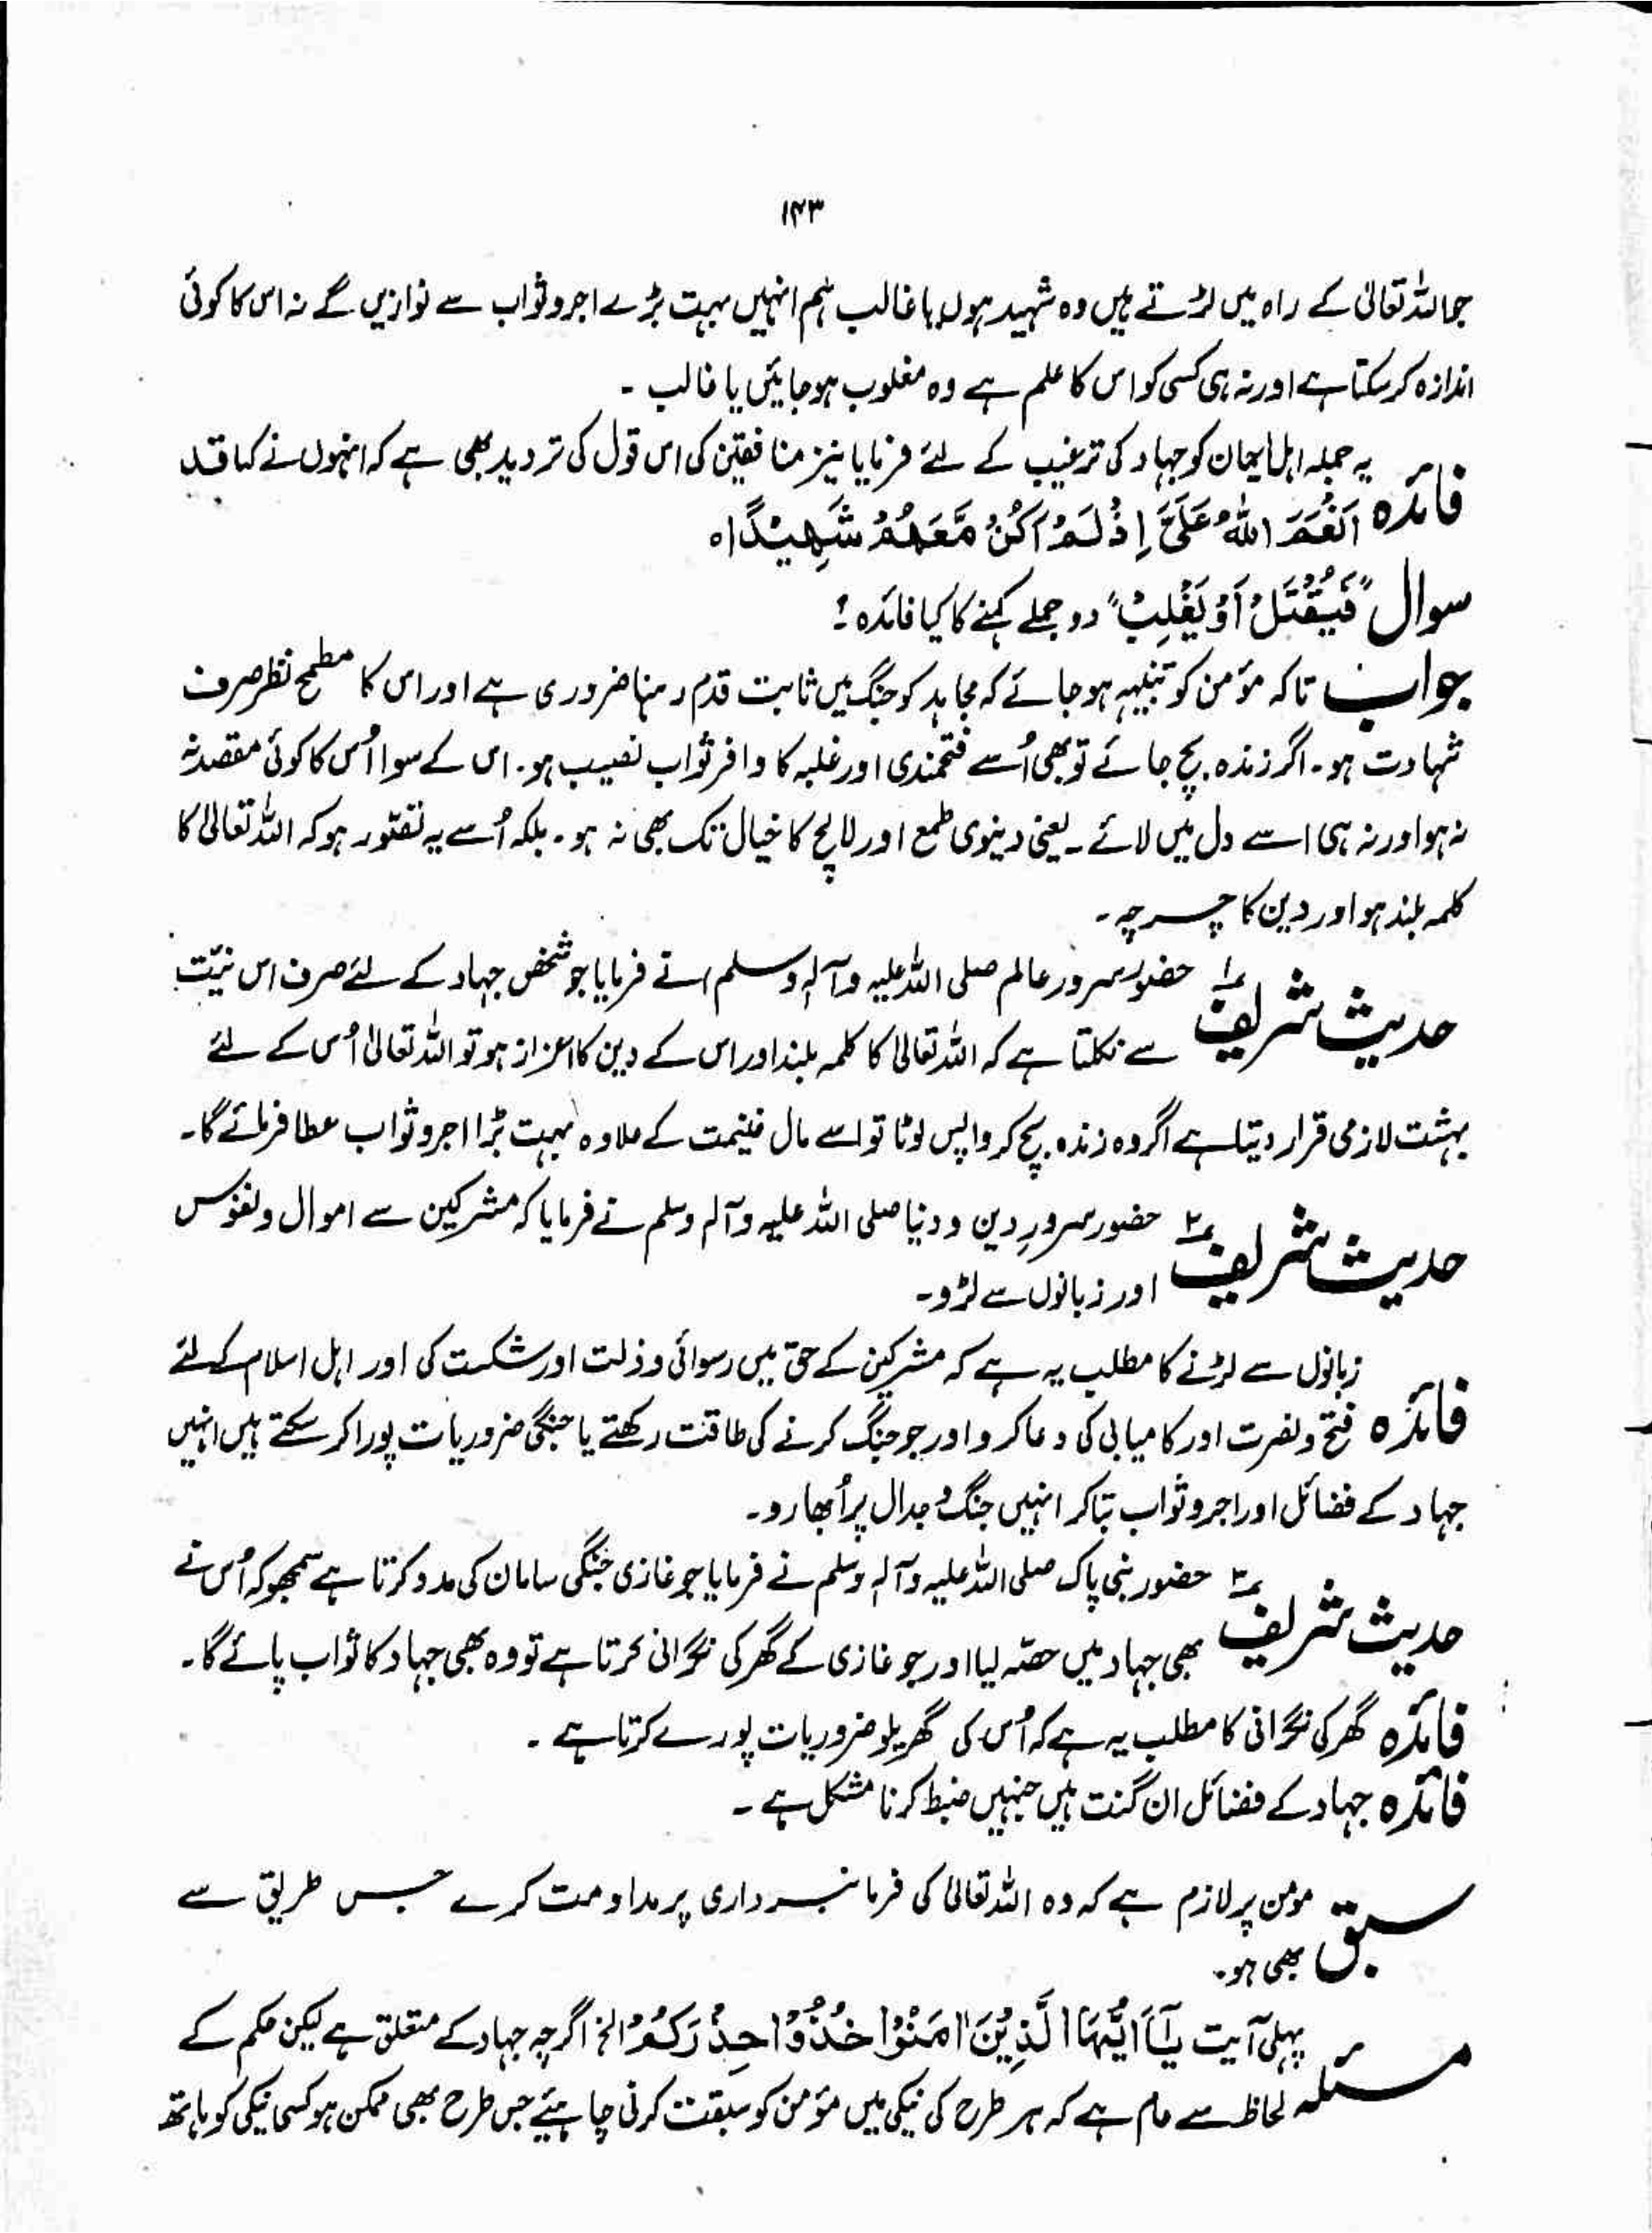 ۱۴۳
جو اللہ تعالیٰ کے راہ میں لڑتے ہیں وہ شہید ہوں یا غالب ہم انہیں بہت بڑے اجر و ثواب سے نوازیں گے نہ اس کا کوئی
اندازہ کرسکتا ہے اور نہ ہی کسی کو اس کا علم ہے وہ مغلوب ہو جائیں یا غالب ۔
فائدہ یہ جملہ اہل ایمان کو جہاد کی ترغیب کے لئے فرمایا نیز منافقین کی اس قول کی تردید بھی ہے کہ انہوں نے کہا قَد
اَنْعَمَ اللّٰهُ عَلَیَّ اِذْ لَمْ اَکُنْ مَّعَهُمْ شَهِیْدًاہ
سوال ”فَیُقْتَلْ اَوْ یَغْلِبْ“ دو جملے کہنے کا کیا فائدہ ؟
جواب تاکہ مؤمن کو تنبیہہ ہو جائے کہ مجاہد کو جنگ میں ثابت قدم رہنا ضروری ہے اور اس کا مطمح نظر صرف
شہادت ہو۔ اگر زندہ بچ جائے تو بھی اُسے فتحمندی اور غلبہ کا وافر ثواب نصیب ہو۔ اس کے سوا اُس کا کوئی مقصد نہ
نہ ہو اور نہ ہی اسے دل میں لائے ۔ یعنی دینوی طمع اور لالچ کا خیال تک بھی نہ ہو۔ بلکہ اُسے یہ تصّور ہو کہ اللہ تعالیٰ کا
کلمہ بلند ہو اور دین کا چرچہ ۔
حدیث شریف ۱ حضور سرور عالم صلی اللہ علیہ وآلہ وسلم نے فرمایا جو شخص جہاد کے لئے صرف اس نیّت
سے نکلتا ہے کہ اللہ تعالیٰ کا کلمہ بلند اور اس کے دین کا اعزاز ہو تو اللہ تعالیٰ اُس کے لئے
بہشت لازمی قرار دیتا ہے اگر وہ زندہ بچ کر واپس لوٹا تو اسے مال غنیمت کے علاوہ بہت بڑا اجر و ثواب عطا فرمائے گا۔
حدیث شریف ۲ حضور سرورِ دین و دنیا صلی اللہ علیہ وآلہ وسلم نے فرمایا کہ مشرکین سے اموال و نفوس
اور زبانوں سے لڑو۔
فائدہ زبانوں سے لڑنے کا مطلب یہ ہے کہ مشرکین کے حق میں رسوائی و ذلت اور شکست کی اور اہل اسلام کے لئے
فتح و نصرت اور کامیابی کی دعا کرو اور جو جنگ کرنے کی طاقت رکھتے یا جنگی ضروریات پورا کر سکتے ہیں انہیں
جہاد کے فضائل اور اجر و ثواب بتا کر انہیں جنگ و جدال پر اُبھارو۔
حدیث شریف ۳ حضور نبی پاک صلی اللہ علیہ وآلہ وسلم نے فرمایا جو غازی جنگی سامان کی مدد کرتا ہے سمجھو کہ اُس نے
بھی جہاد میں حصّہ لیا اور جو غازی کے گھر کی نگرانی کرتا ہے تو وہ بھی جہاد کا ثواب پائے گا۔
فائدہ گھر کی نگرانی کا مطلب یہ ہے کہ اُس کی گھریلو ضروریات پورے کرتا ہے ۔
فائدہ جہاد کے فضائل ان گنت ہیں جنہیں ضبط کرنا مشکل ہے ۔
سبق مومن پر لازم ہے کہ وہ اللہ تعالیٰ کی فرمانبرداری پر مداومت کرے جس طریق سے
بھی ہو۔
مسئلہ پہلی آیت یٰٓاَیُّهَا الَّذِیْنَ اٰمَنُوْا خُذُوْا حِذْرَکُمْ الخ اگرچہ جہاد کے متعلق ہے لیکن حکم کے
لحاظ سے عام ہے کہ ہر طرح کی نیکی میں مؤمن کو سبقت کرنی چاہئیے جس طرح بھی ممکن ہو کسی نیکی کو ہاتھ